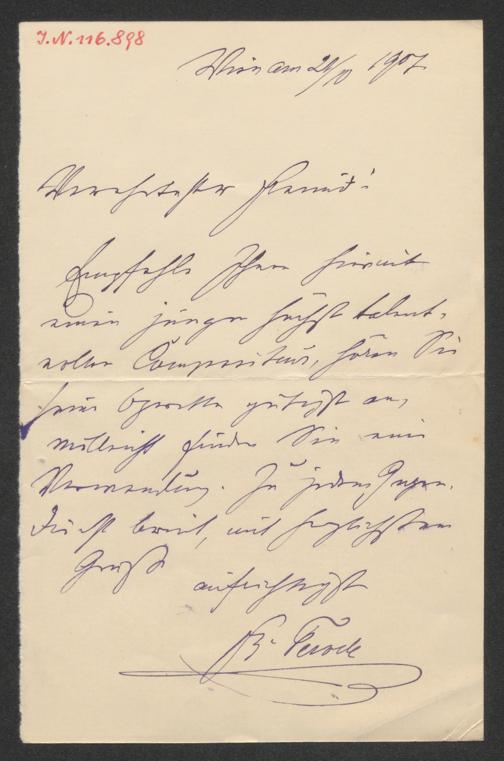 I.N. 116.898
Wien am 24/ 1907
Verehrtester Freund!
Empfehle Ihnen hiermit
einen jungen höchst talent-
vollen Compositeur, hören Sie
seine Operette gütigst an,
vielleicht finden Sie eine
Verwendung. Zu jedem Gegen-
dienst bereit, mit herzlichstem
Gruß
aufrichtigst